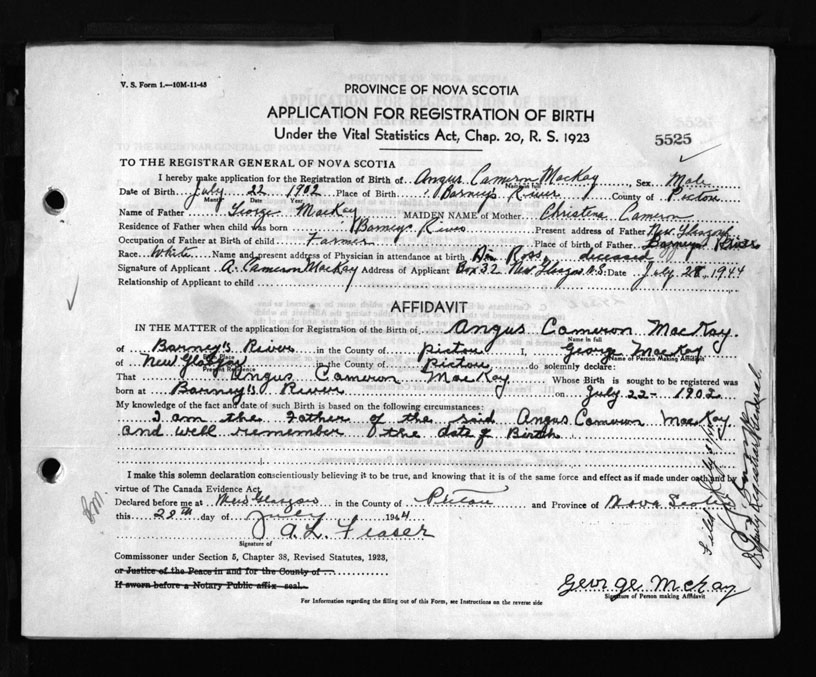 V. S. Form 1.—10M-11-43
PROVINCE OF NOVA SCOTIA
APPLICATION FOR REGISTRATION OF BIRTH
Under the Vital Statistics Act, Chap. 20, R. S. 1923
5525
TO THE REGISTRAR GENERAL OF NOVA SCOTIA
I hereby make application for the Registration of Birth of Angus Cameron MacKay, Sex Male
Name in full
Date of Birth July 22 1902 Place of Birth Barney's River County of Pictou
Month Date Year
Name of Father George MacKay MAIDEN NAME of Mother Christena Cameron
Residence of Father when child was born Barneys River Present address of Father New Glasgow
Occupation of Father at Birth of child Farmer Place of birth of Father Barneys River
Race White Name and present address of Physician in attendance at birth Dr. Ross, deceased
Signature of Applicant A. Cameron MacKay Address of Applicant Box 32 New Glasgow N.S. Date July 28, 1944
Relationship of Applicant to child
AFFIDAVIT
IN THE MATTER of the application for Registration of the Birth of Angus Cameron MacKay.
Name in full
of Barney's River in the County of Pictou I, George MacKay
Birth Place Name of Person Making Affidavit
of New Glasgow in the County of Pictou do solemnly declare:
Present Residence
That Angus Cameron MacKay Whose Birth is sought to be registered was
born at Barney's River on July 22- 1902
My knowledge of the fact and date of such Birth is based on the following circumstances:
I am the Father of the said Angus Cameron MacKay.
and well remember the date of Birth
I make this solemn declaration conscientiously believing it to be true, and knowing that it is of the same force and effect as if made under oath and by
virtue of The Canada Evidence Act.
Declared before me at New Glasgow in the County of Pictou and Province of Nova Scotia
this 28th day of July 1944
A. L. Fraser
Signature of
Commissioner under Section 5, Chapter 38, Revised Statutes, 1923,
or Justice of the Peace in and for the County of
If sworn before a Notary Public affix seal.
George McKay
Signature of Person making Affidavit
For Information regarding the filling out of this Form, see Instructions on the reverse side
Deputy Registrar General.